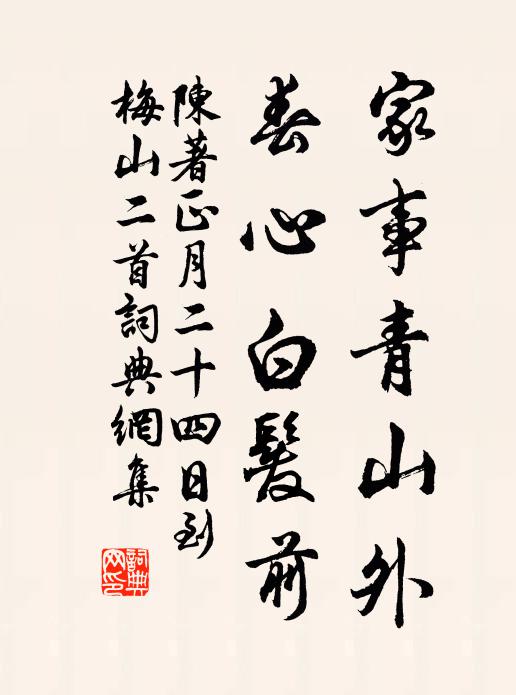 家事青山外
春心白髮前
陳著正月二十四日到
梅山二首詞典網集
詞典
网印